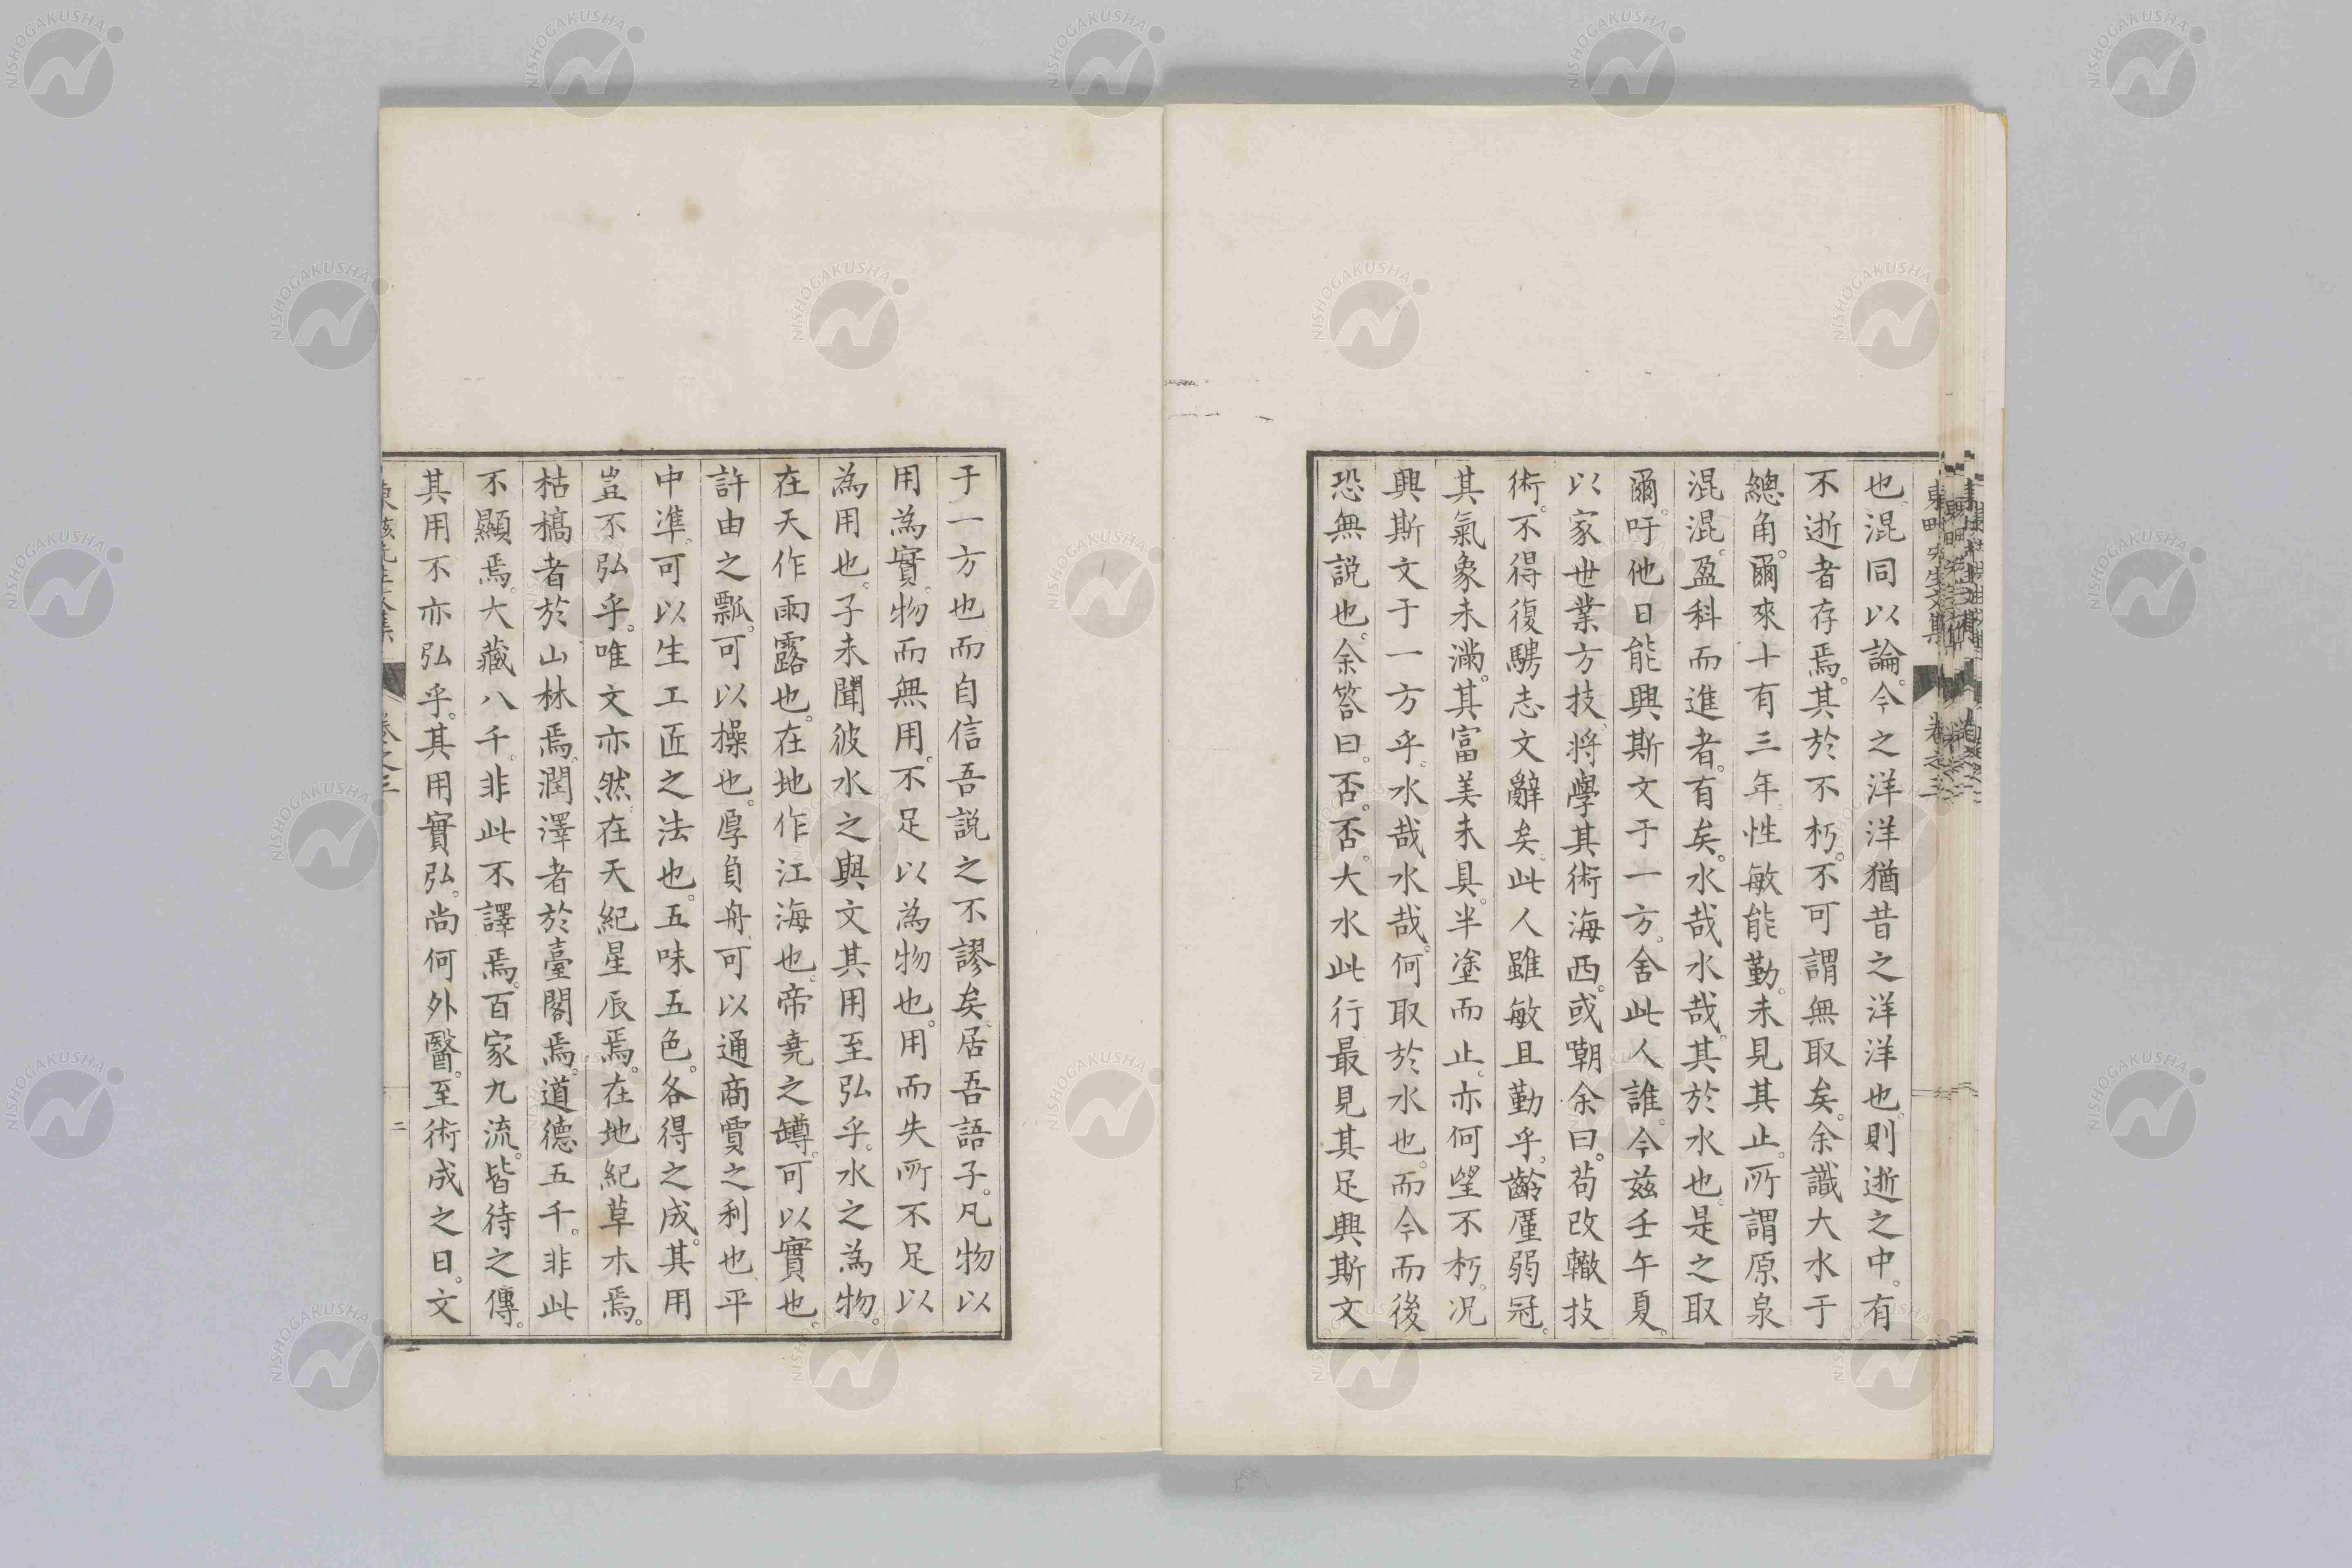 也混同以論。今之洋洋猶昔之洋洋也。則逝之中。有
不逝者存焉。其於不朽。不可謂無取矣。余識大水于
總角。爾來十有三年。性敏能勤。未見其止。所謂原泉
混混。盈科而進者。有矣。水哉水哉。其於水也。是之取
爾。吁他日能興斯文于一方。舍此人誰。今茲壬午夏。
以家世業方技。將學其術海西。或嘲余曰。苟改轍技
術。不得復騁志文辭矣。此人雖敏且勤乎。齡厪弱冠。
其氣象未滿。其富美未具。半塗而止。亦何望不朽。況
興斯文于一方乎。水哉水哉。何取於水也。而今而後
恐無説也。余答曰。否。否。大水此行最見其足興斯文
于一方也而自信吾説之不謬矣。居吾語子。凡物以
用為實。物而無用。不足以為物也。用而失所不足以
為用也。子未聞彼水之與文其用至弘乎。水之為物。
在天作雨露也。在地作江海也。帝堯之罇。可以實也。
許由之瓢。可以操也。厚負舟可以通商賈之利也。平
中準。可以生工匠之法也。五味五色。各得之成。其用
豈不弘乎。唯文亦然。在天紀星辰焉。在地紀草木焉。
枯槁者於山林焉。潤澤者於臺閣焉。道德五千。非此
不顯焉。大藏八千。非此不譯焉。百家九流。皆待之傳。
其用不亦弘乎。其用實弘。尚何外醫。至術成之日。文
二